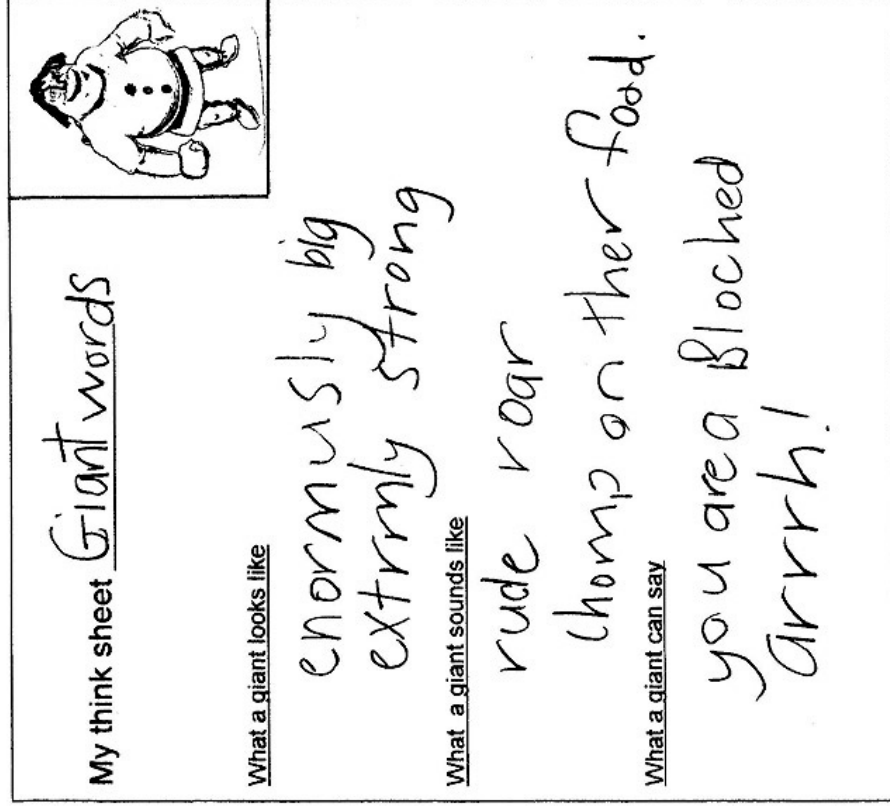 My think sheet Giant words
What a giant looks like
enormusly big
extrmly strong
What a giant sounds like
rude roar
chomp on ther food.
What a giant can say
you are a Bloched
arrrh!